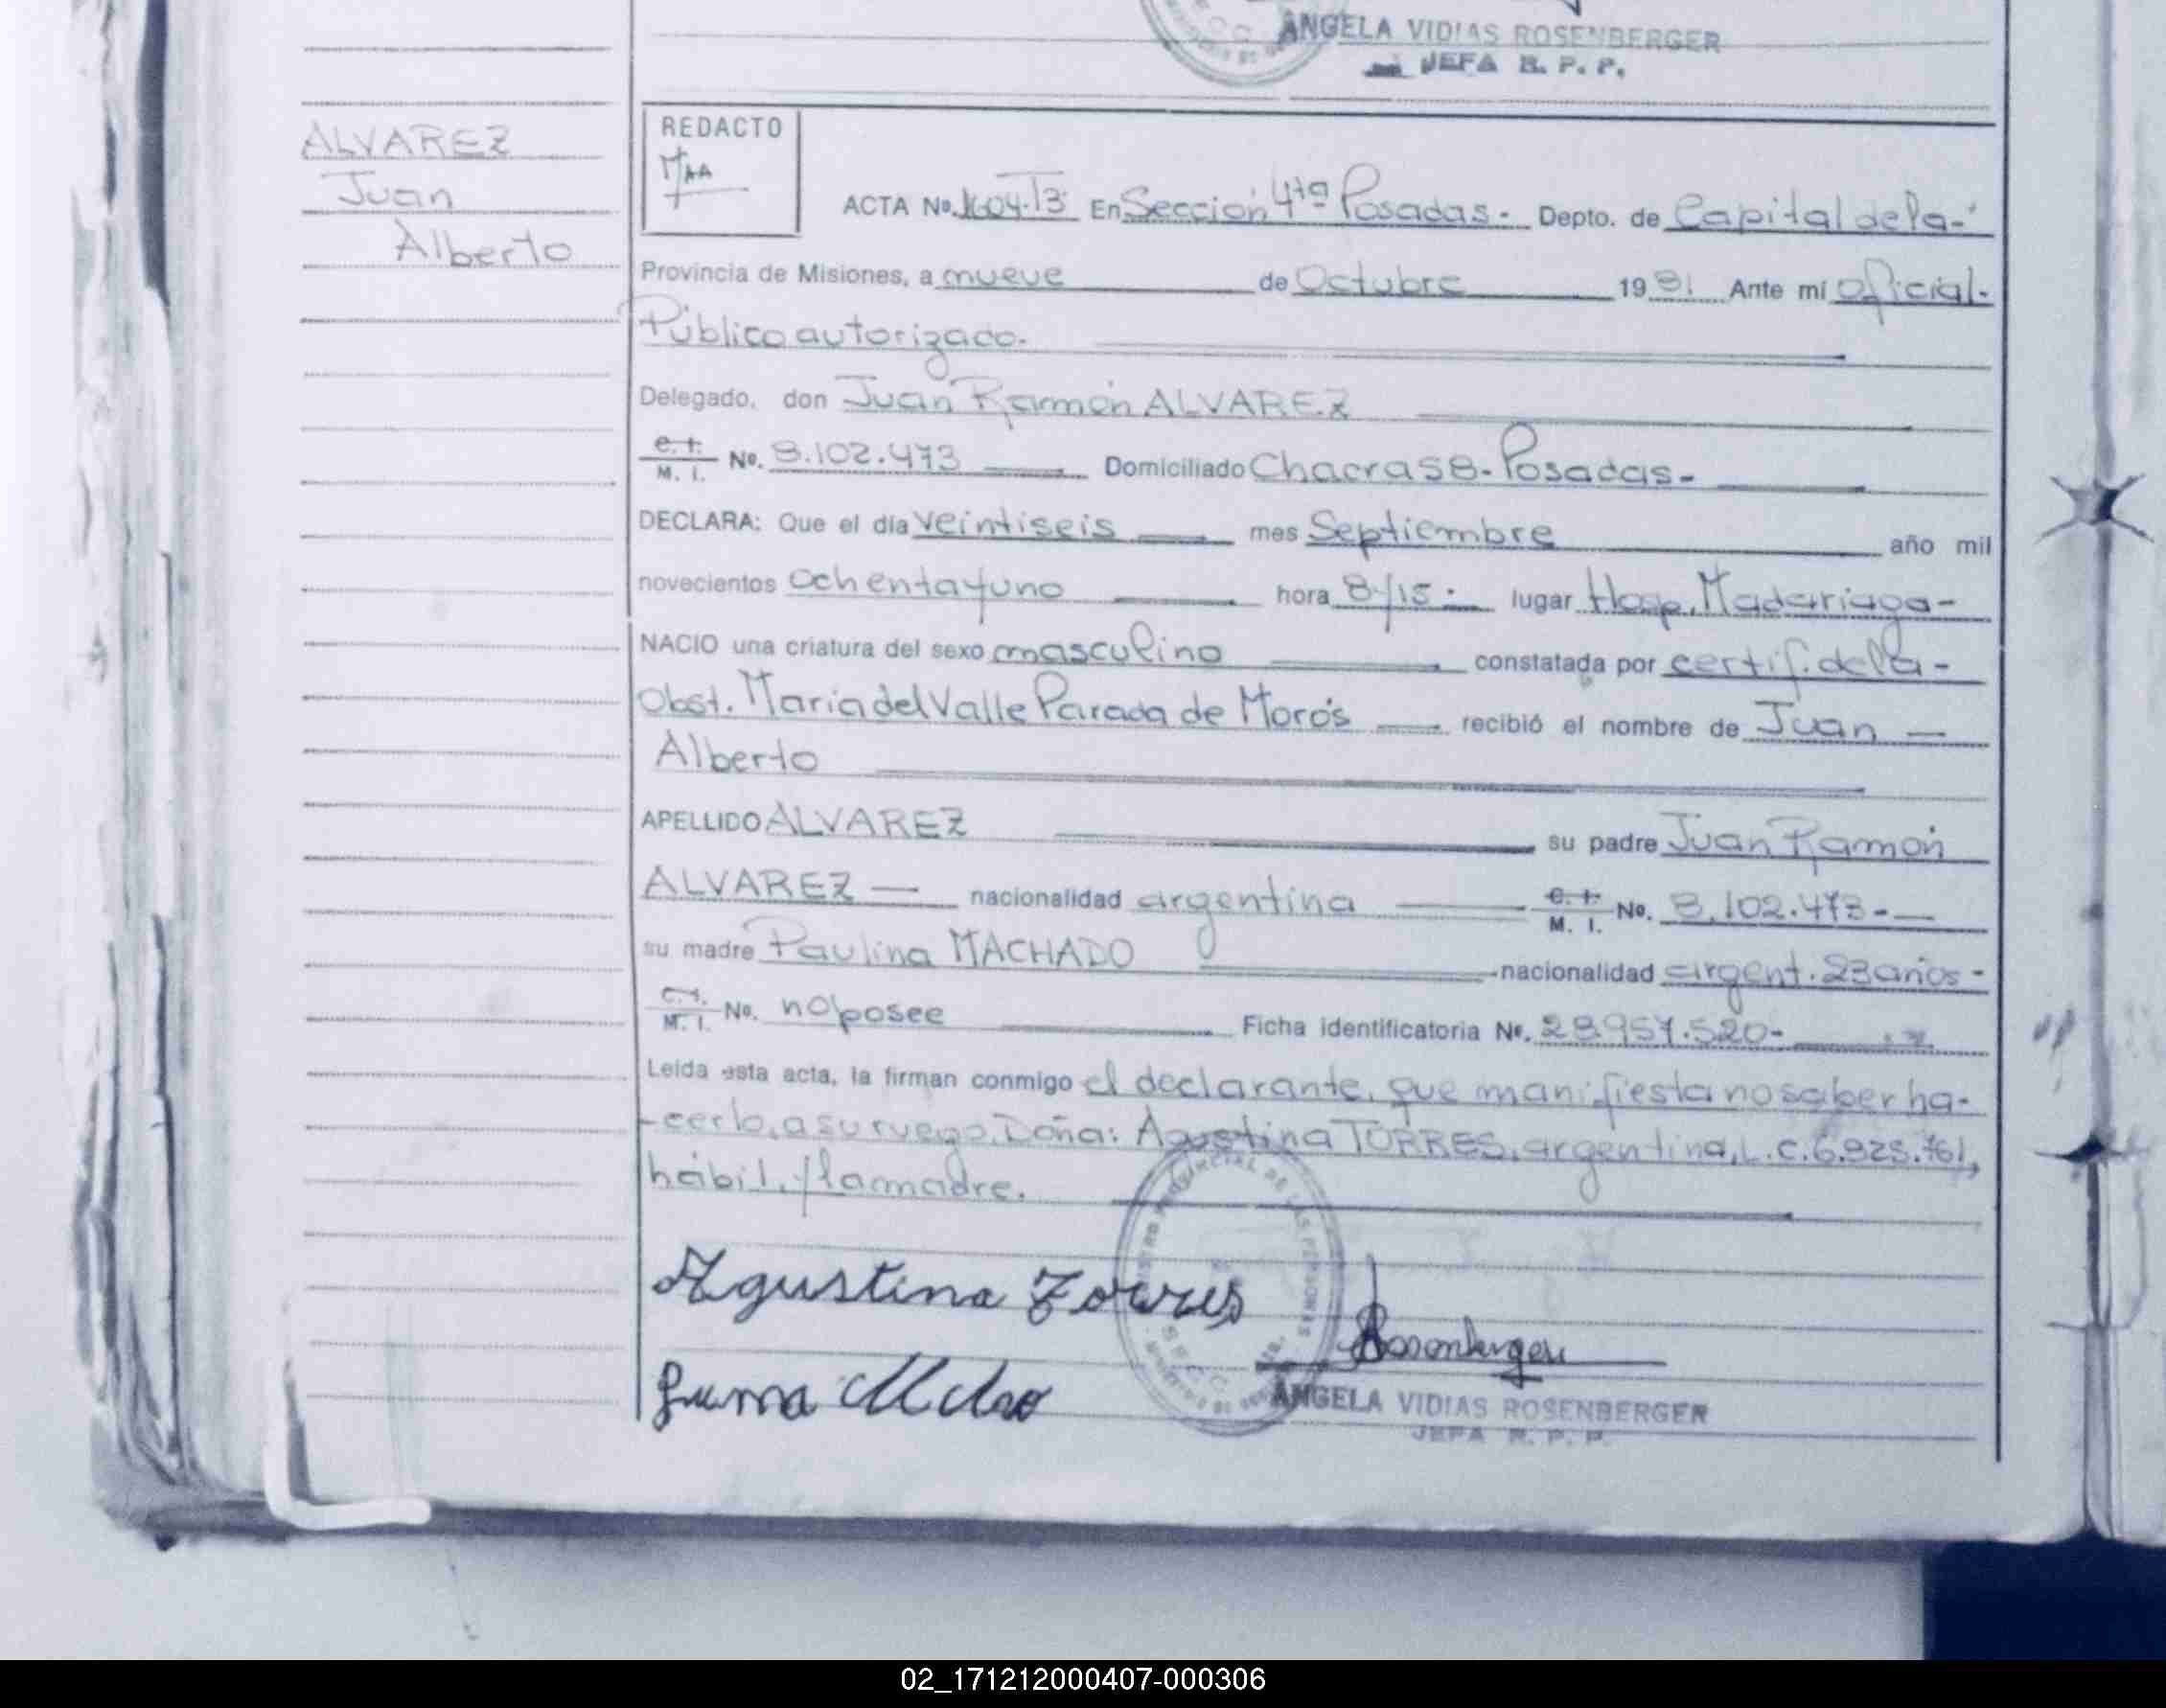 ANGELA VIDIAS ROSENBERGER
JEFA R. P. P.
ALVAREZ
Juan
Alberto
REDACTO
ACTA No. En Sección 4ta Posadas.- Depto. de Capital de la-
Provincia de Misiones, a nueve de Octubre 1981 Ante mí Oficial.
Público autorizado.
Delegado, don Juan Ramón ALVAREZ
C. I. M. I. No. 8.102.473 Domiciliado Chacra 58-Posadas-
DECLARA: Que el día veintiseis mes Septiembre año mil
novecientos ochenta y uno hora 8/15.- lugar Hosp. Madariaga-
NACIO una criatura del sexo masculino constatada por certif. de la-
Obst. Maria del Valle Parada de Morós recibió el nombre de Juan
Alberto
APELLIDO ALVAREZ su padre Juan Ramón
ALVAREZ nacionalidad argentina C. I. M. I. No. 8.102.473-
su madre Paulina MACHADO nacionalidad argent. 23 años-
C. I. M. I. No. no posee Ficha identificatoria No. 28.957.520-
Leída esta acta, la firman conmigo el declarante, que manifiesta no saber ha-
-cerlo, a su ruego, Doña: Agustina TORRES, argentina, L.C. 6.825.761,
hábil, y la madre.
Agustina Torres
Rosenberger
ANGELA VIDIAS ROSENBERGER
JEFA R. P. P.
02_171212000407-000306